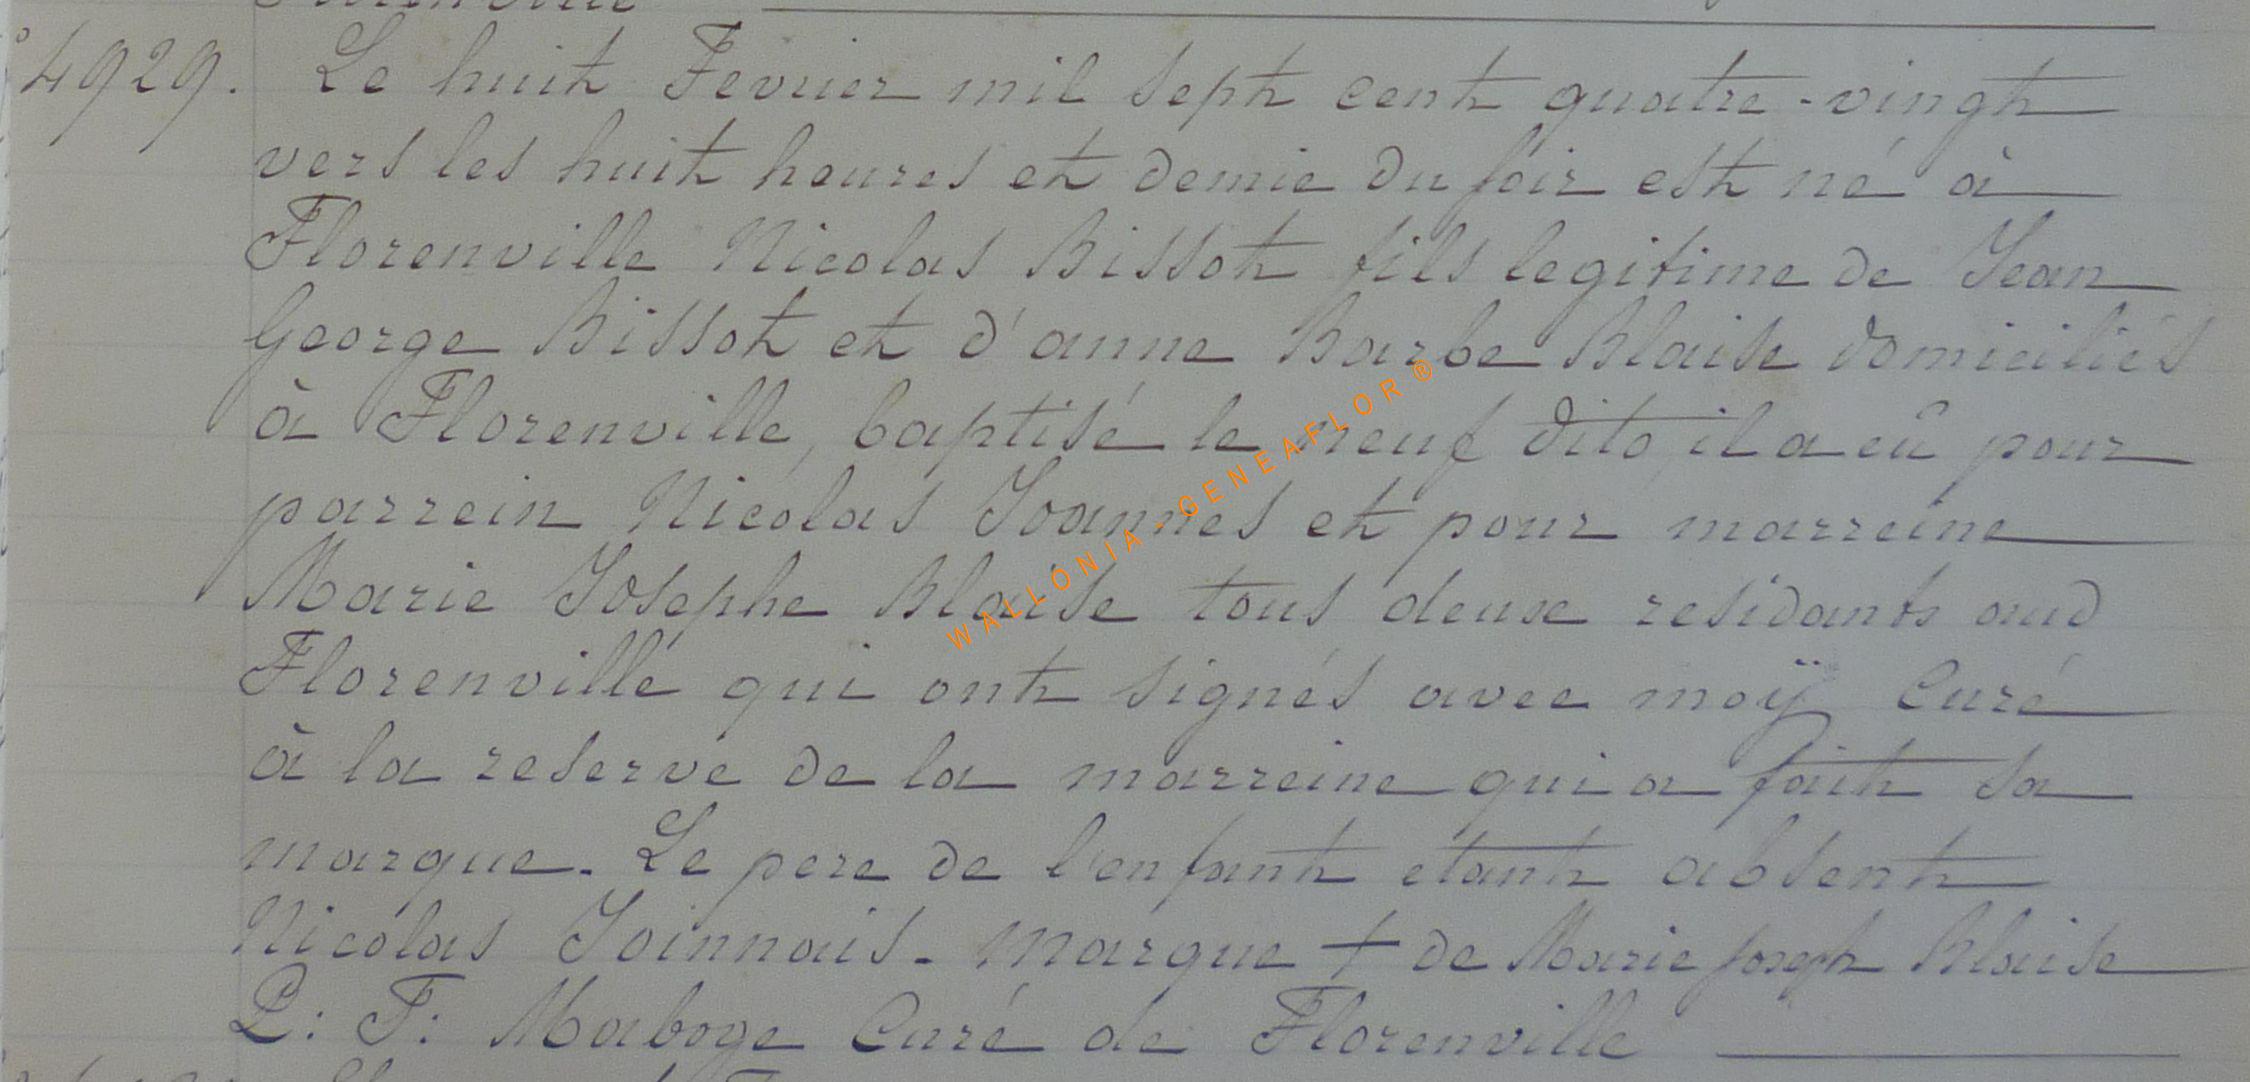 4929. Le huit Fevrier mil sept cent quatre-vingt
vers les huit heures et demie du soir est né à
Florenville Nicolas Bissot fils legitime de Jean
George Bissot et d'anne Barbe Blaise domiciliés
à Florenville, baptisé le neuf dito, il a eû pour
parrein Nicolas Joannes et pour marreine
Marie Josephe Blaise tous deux residants aud
Florenville qui ont signés avec moÿ Curé
à la reserve de la marreine qui a fait sa
marque. Le pere de l'enfant etant absent
Nicolas Joinnais. marque + de Marie Joseph Blaise
P: F: Maboge Curé de Florenville
WALLONIA-GENEAFLOR®